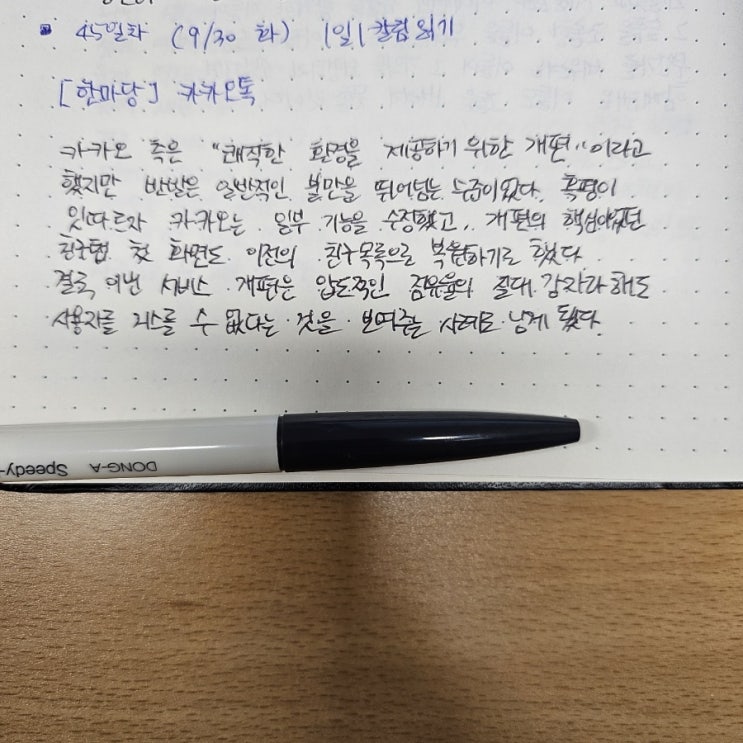 45일차 (9/30 화) 1일 1칼럼 읽기
[한마당] 카카오톡
카카오 측은 "쾌적한 환경을 제공하기 위한 개편"이라고
했지만 반발은 일반적인 불만을 뛰어넘는 수준이었다. 혹평이
잇따르자 카카오는 일부 기능을 수정했고, 개편의 핵심이었던
친구탭 첫 화면도 이전의 친구목록으로 복원하기로 했다
결국 이번 서비스 개편은 압도적인 점유율의 절대 강자라 해도
사용자를 거스를 수 없다는 것을 보여주는 사례로 남게 됐다.
DONG-A Speedy-